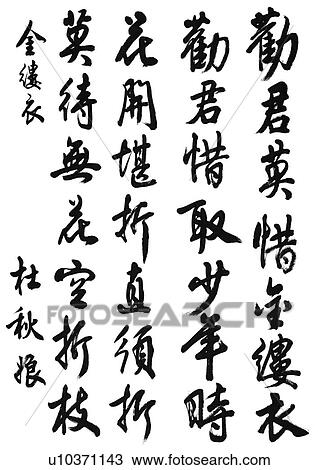 勸君莫惜金縷衣
勸君惜取少年時
花開堪折直須折
莫待無花空折枝
金缕衣
杜秋娘
© Fotosearch
u10371143 www.fotosearch.com